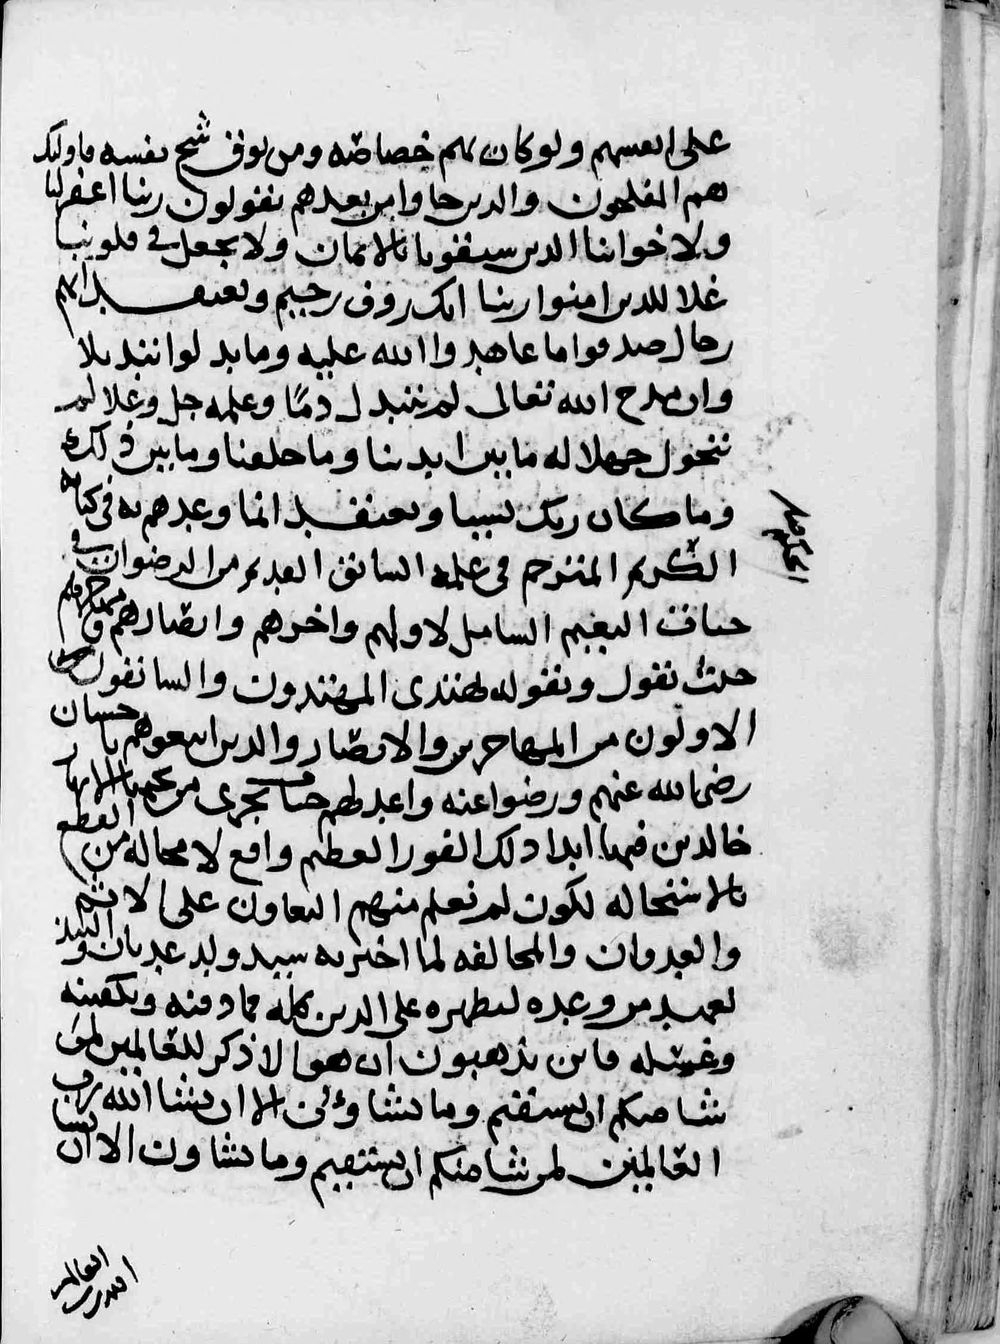 على انفسهم ولو كان بهم خصاصه ومن يوق شح نفسه فاوليك
هم المفلحون والدين جاوا من بعدهم يقولون ربنا اغفر لنا
ولاخواننا الدين سبقونا بالايمان ولا تجعل في قلوبنا
غلا للدين امنوا ربنا انك روف رحيم ونعتقد انهم
رجال صدقوا ما عاهدوا الله عليه وما بدلوا تبديلا
وان مدح الله تعالى لم يتبدل ذمًا وعلمه جل وعلا لم
يتحول جهلا له ما بين ايدينا وما خلفنا وما بين ذلك
وما كان ربك نسيا ونعتقد انما وعدهم به في كتابه
الكريم المترجم في علمه السابق القديم من الرضوان في
جنات النعيم الشامل لاولهم واخرهم وانصارهم ومهاجرهم
حيث يقول وبقوله يهتدى المهتدون والسابقون
الاولون من المهاجرين والانصار والدين اتبعوهم باحسان
رضى الله عنهم ورضوا عنه واعد لهم جنات تجرى من تحتها الانهار
خالدين فيها ابدا دلك الفوز العظيم واقع لا محاله من القطع
بالاستحاله لكون لم نعلم منهم التعاون على الاثم
والعدوان والمخالفه لما اخبر به سيد ولد عدنان و
لعهد من وعده ليظهره على الدين كله مما دفنه وتكفينه
وغسله فاين تذهبون ان هو الا ذكر للعالمين لمن
شا منكم ان يستقيم وما تشاؤن الا ان يشا الله رب
العالمين لمن شا منكم ان يستقيم وما تشاون الا ان يشا
الله رب العالمين